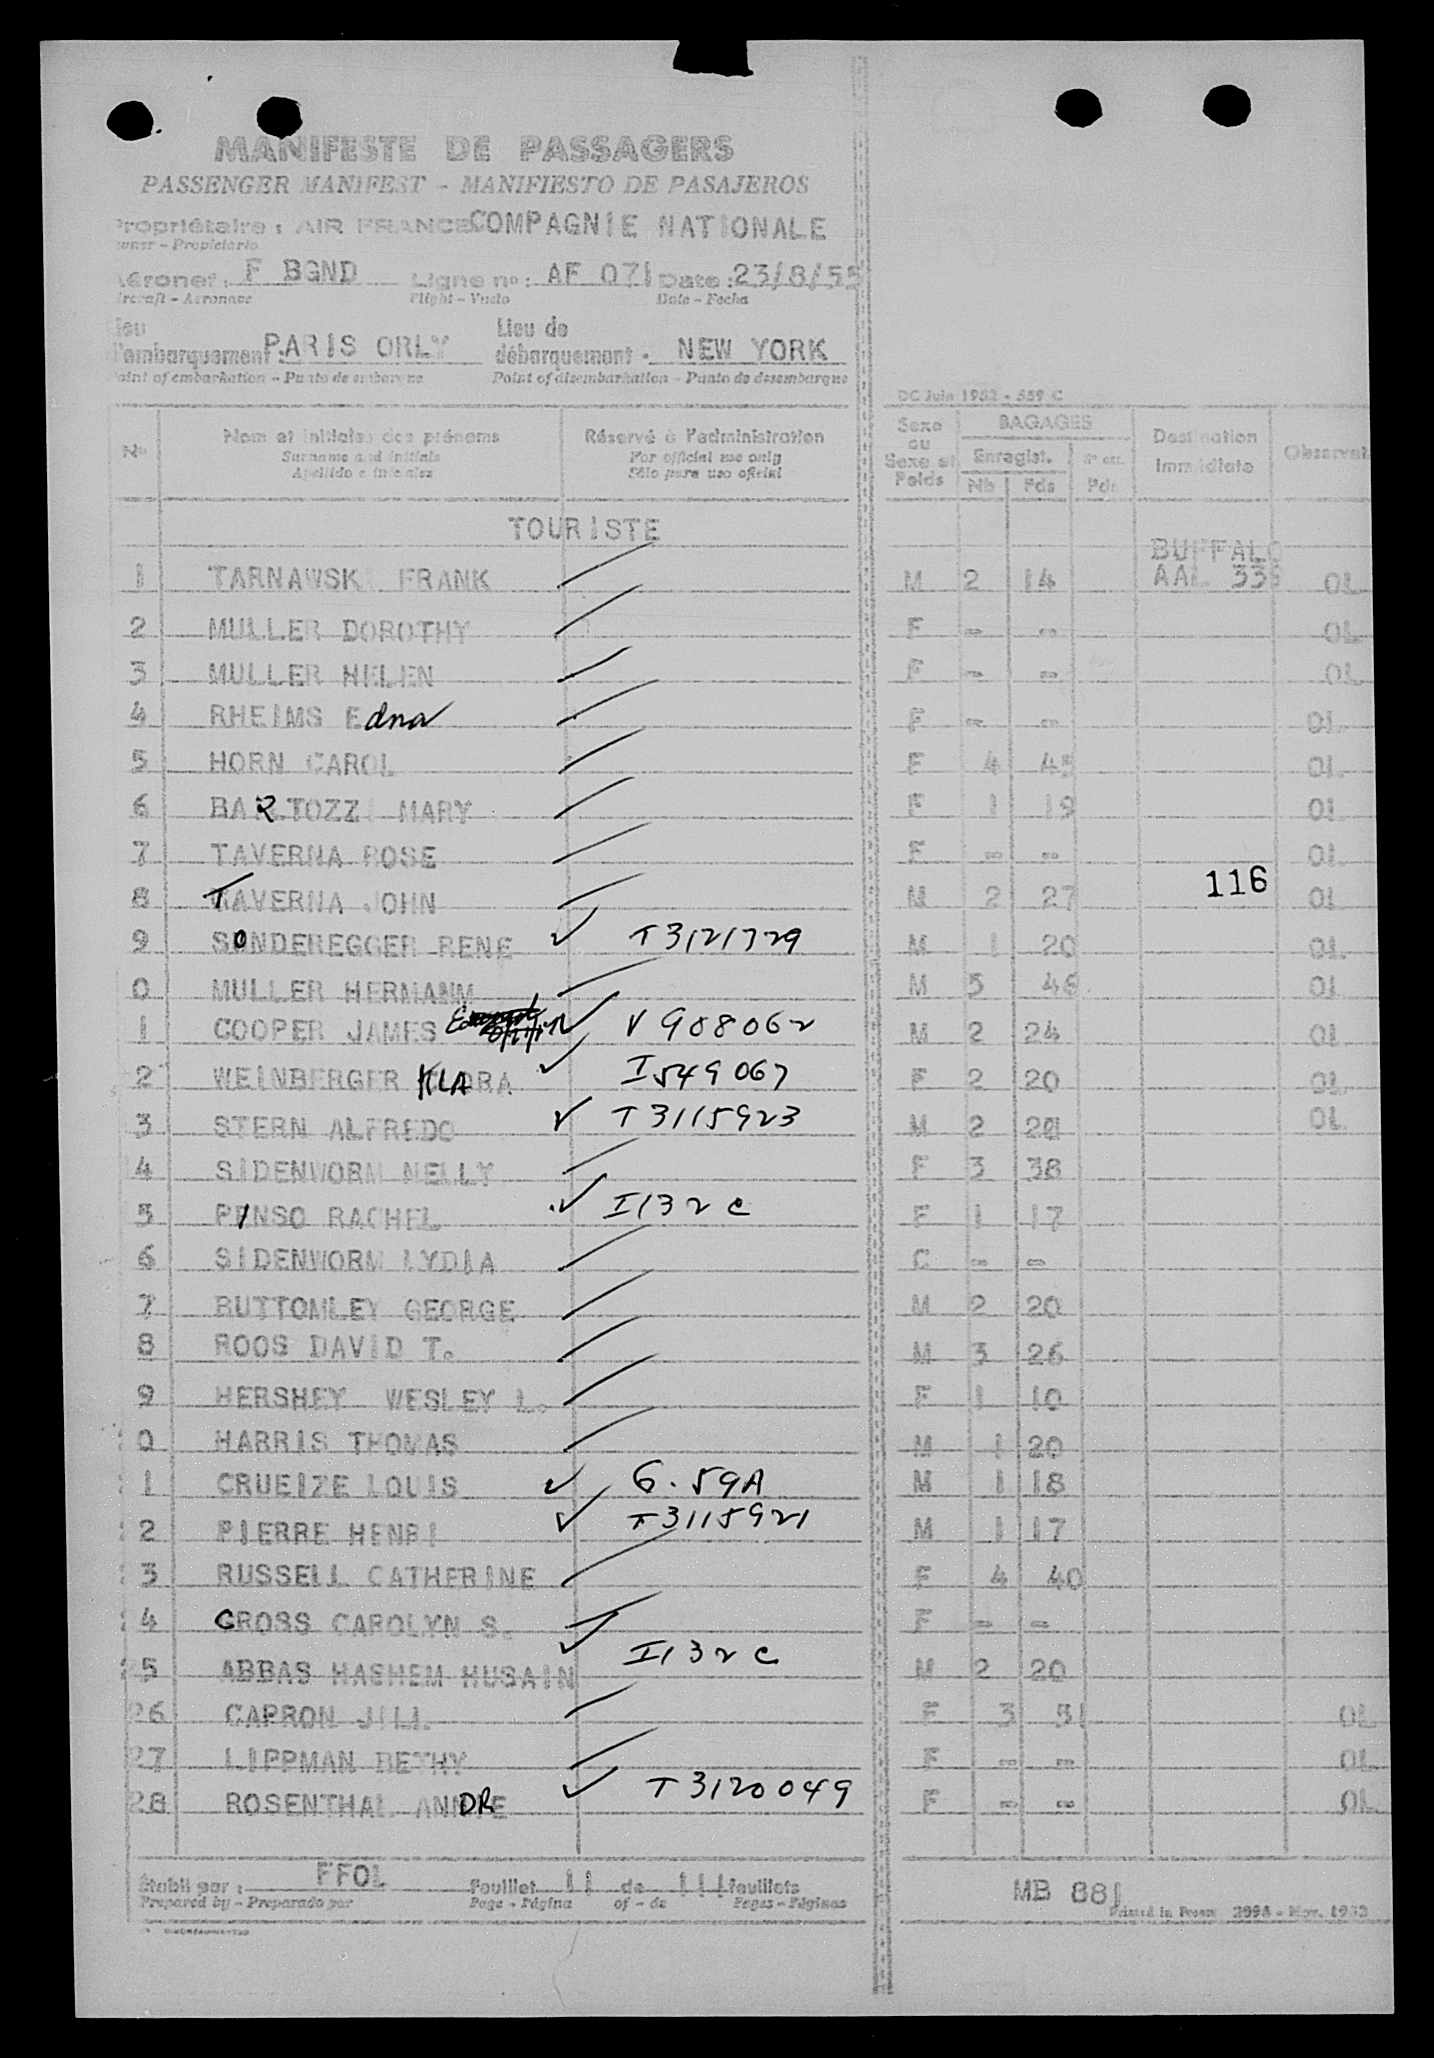 MANIFESTE DE PASSAGERS
PASSENGER MANIFEST - MANIFIESTO DE PASAJEROS
Propriétaire : AIR FRANCE COMPAGNIE NATIONALE
owner - Propietario
Aéronef : F BGND Ligne no : AF 071 Date : 23/8/55
Aircraft - Aeronave Flight - Vuelo Date - Fecha
Lieu d'embarquement : PARIS ORLY Lieu de débarquement . NEW YORK
Point of embarkation - Punto de embarque Point of disembarkation - Punto de desembarque
DC Juin 1952 - 559 C
No Nom et initiales des prénoms Réservé à l'administration Sexe ou Sexe et Poids BAGAGES Destination immédiate Observat.
Surname and initials For official use only Enregist.
Apellido e iniciales Sólo para uso oficial Nb Pds Pds
TOURISTE
BUFFALO
1 TARNAWSKI FRANK M 2 14 AAL 339 OL
2 MULLER DOROTHY F - - OL
3 MULLER HELEN F - - OL
4 RHEIMS Edna F - - OL
5 HORN CAROL F 4 45 OL
6 BARTOZZI MARY F 1 19 OL
7 TAVERNA ROSE F - - OL
116
8 TAVERNA JOHN M 2 27 OL
9 SONDEREGGER RENE T3121729 M 1 20 OL
0 MULLER HERMANM M 5 46 OL
1 COOPER JAMES V908062 M 2 24 OL
2 WEINBERGER KLARA I549067 F 2 20 OL
3 STERN ALFREDO T3115923 M 2 20 OL
4 SIDENWORM NELLY F 3 38
5 PINSO RACHEL I132c F 1 17
6 SIDENWORM LYDIA C - -
7 BUTTOMLEY GEORGE M 2 20
8 ROOS DAVID T. M 3 26
9 HERSHEY WESLEY L. F 1 10
0 HARRIS THOMAS M 1 20
1 CRUEIZE LOUIS G.59A M 1 18
2 PIERRE HENRI T3115921 M 1 17
3 RUSSELL CATHERINE F 4 40
4 GROSS CAROLYN S. F - -
5 ABBAS HASHEM HUSAIN I132c M 2 20
26 CAPRON JILL F 3 51 OL
27 LIPPMAN BETHY F - - OL
28 ROSENTHAL ANDRE T3120049 F - - OL
Etabli par : FFOL Feuillet 11 de 111 feuillets MB 881
Prepared by - Preparado por Page - Página of - de Pages - Páginas
Printed in France 2998 - Nov. 1952